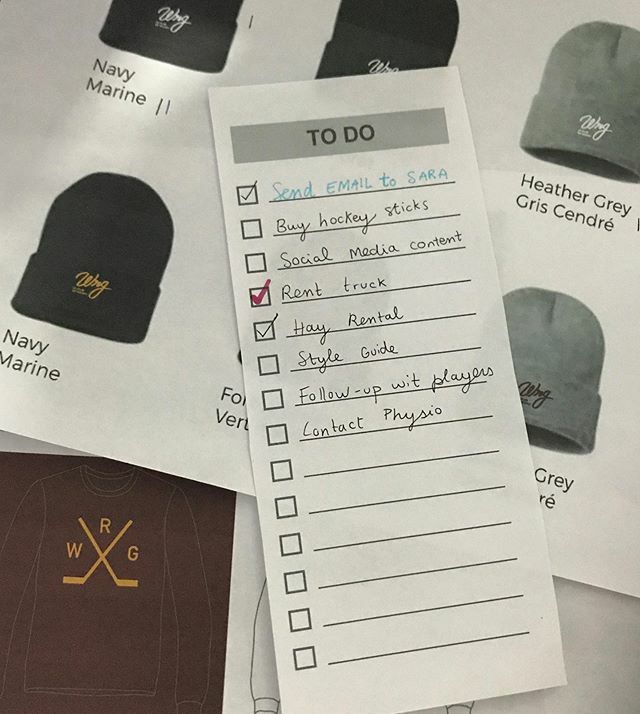 Wrg
Navy
Marine
Wrg
Wrg
Heather Grey
Gris Cendré
Wrg
Navy
Marine
For
Vert
Wrg
Grey
ré
W R G
TO DO
Send EMAIL to SARA
Buy hockey sticks
Social Media content
Rent truck
Hay Rental
Style Guide
Follow-up wit players
Contact Physio